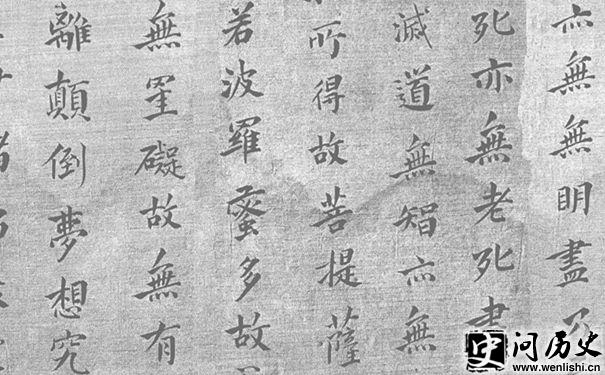 亦無無明盡乃
死亦無老死盡
滅道無智亦無
所得故菩提薩
若波羅蜜多故
無罣礙故無有
離顛倒夢想究
史 问历史
www.wenlishi.cn